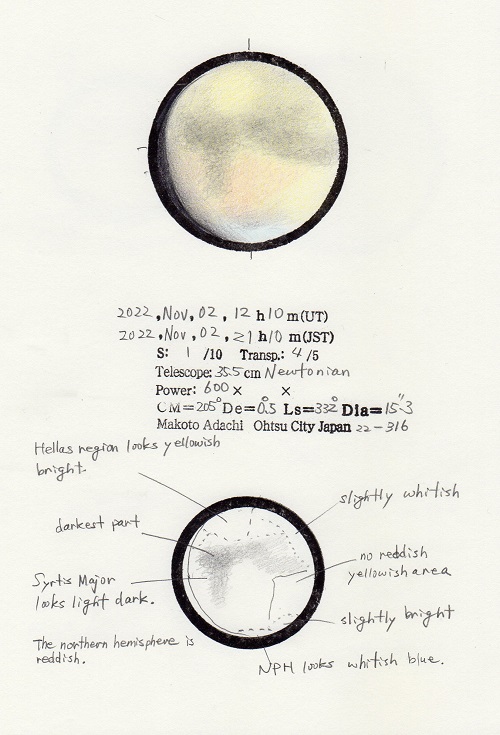 2022, Nov, 02, 12 h 10 m (UT)
2022, Nov, 02, 21 h 10 m (JST)
S: 1 /10 Transp.: 4 /5
Telescope: 35.5 cm Newtonian
Power: 600 × ×
CM=205° De=0.5° Ls=332° Dia=15".3
Makoto Adachi Ohtsu City Japan 22-316
Hellas region looks yellowish
bright.
slightly whitish
darkest part
no reddish
yellowish area
Syrtis Major
looks light dark.
slightly bright
The northern hemisphere is
reddish.
NPH looks whitish blue.